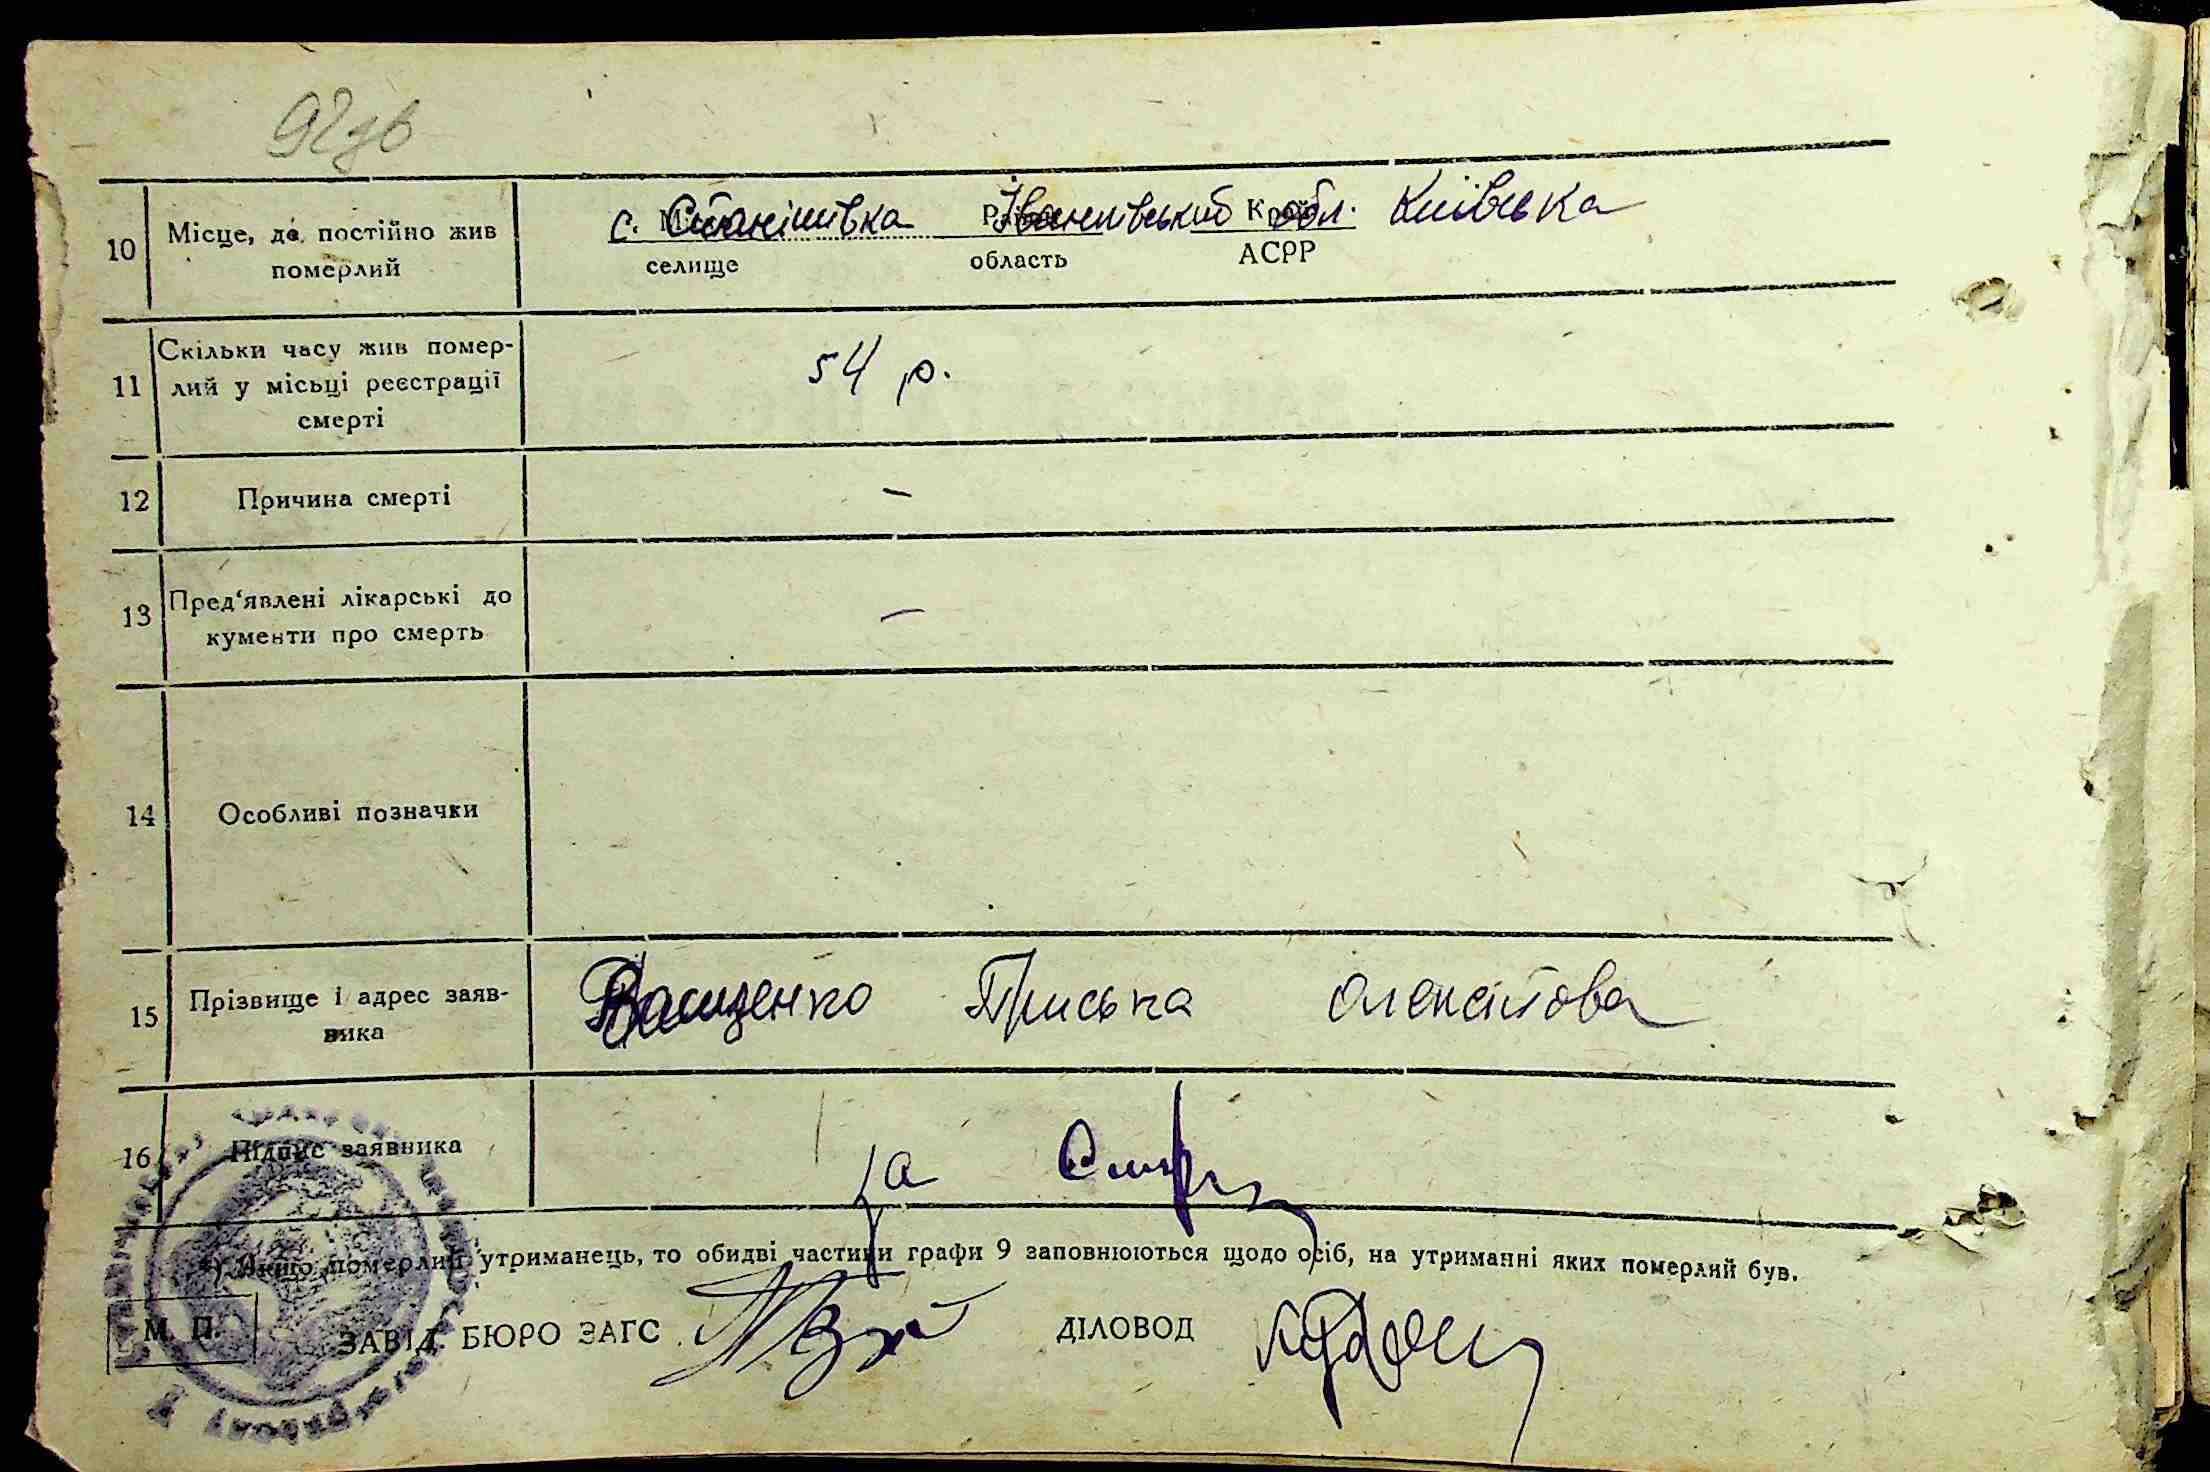 92дв
10 Місце, де постійно жив померлий
с. Станішівка Іванківський обл. Київська
селище область АСРР
11 Скільки часу жив помер-
лий у місьці реєстрації
смерті
54 р.
12 Причина смерті –
13 Пред'явлені лікарські до
кументи про смерть –
14 Особливі позначки
15 Прізвище і адрес заяв-
вика
Ващенко Приська Олексітова
16 Підпис заявника
за
*) Якщо померлий утриманець, то обидві частини графи 9 заповнюються щодо осіб, на утриманні яких померлий був.
М. П. ЗАВІД. БЮРО ЗАГС ДІЛОВОД